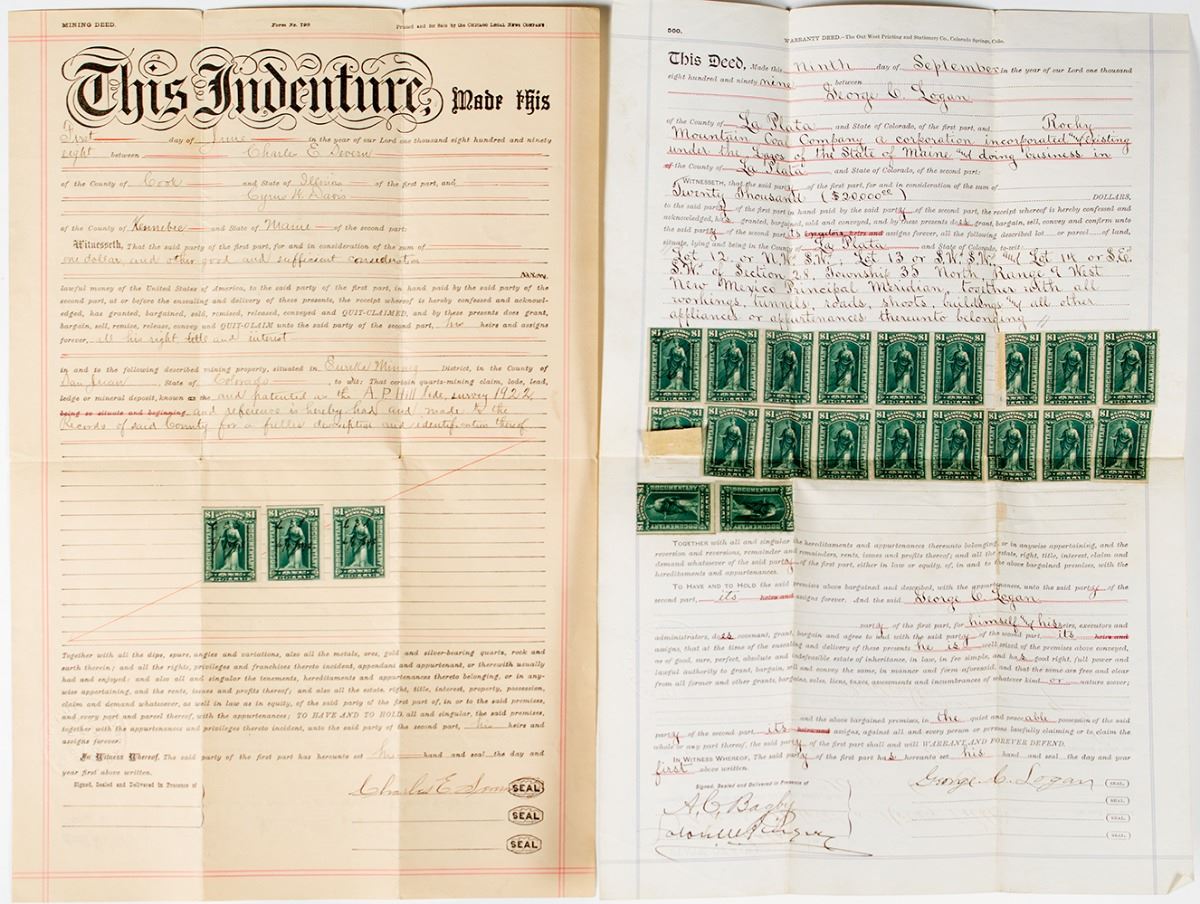 MINING DEED.
Form No. 198
Printed and for Sale by the CHICAGO LEGAL NEWS COMPANY
This Indenture, Made this
First day of June in the year of our Lord one thousand eight hundred and ninety
eight between Charles E
of the County of Cook and State of Illinois of the first part, and
Cyrus W. Davis
of the County of Kennebec and State of Maine of the second part:
Witnesseth, That the said party of the first part, for and in consideration of the sum of
one dollar and other good and sufficient consideration
lawful money of the United States of America, to the said party of the first part, in hand paid by the said party of the
second part, at or before the ensealing and delivery of these presents, the receipt whereof is hereby confessed and acknowl-
edged, has granted, bargained, sold, remised, released, conveyed and QUIT-CLAIMED, and by these presents does grant,
bargain, sell, remise, release, convey and QUIT-CLAIM unto the said party of the second part, his heirs and assigns
forever, all his right title and interest
in and to the following described mining property, situated in Eureka Mining District, in the County of
San Juan, State of Colorado, to wit: That certain quartz-mining claim, lode, lead,
ledge or mineral deposit, known as the and patented as the A. P. Hill lode, survey 1922
being so situate and beginning and reference is hereby had and made to the
Records of said County for a fuller description and identification thereof
$1 $1
DOCUMENTARY
DOLLAR
Together with all the dips, spurs, angles and variations, also all the metals, ores, gold and silver-bearing quartz, rock and
earth therein; and all the rights, privileges and franchises thereto incident, appendant and appurtenant, or therewith usually
had and enjoyed; and also all and singular the tenements, hereditaments and appurtenances thereto belonging, or in any-
wise appertaining, and the rents, issues and profits thereof; and also all the estate, right, title, interest, property, possession,
claim and demand whatsoever, as well in law as in equity, of the said party of the first part of, in or to the said premises,
and every part and parcel thereof, with the appurtenances; TO HAVE AND TO HOLD, all and singular, the said premises,
together with the appurtenances and privileges thereto incident, unto the said party of the second part, his heirs and
assigns forever.
In Witness Whereof, The said party of the first part has hereunto set his hand and seal the day and
year first above written.
Signed, Sealed and Delivered in Presence of
Charles E.
SEAL
SEAL
SEAL
500.
WARRANTY DEED.—The Out West Printing and Stationery Co., Colorado Springs, Colo.
This Deed, Made this Ninth day of September in the year of our Lord one thousand
eight hundred and ninety nine between
George C. Logan
of the County of La Plata and State of Colorado, of the first part, and Rocky
Mountain Coal Company a corporation incorporated & existing
under the Laws of the State of Maine & doing business in
of the County of La Plata and State of Colorado, of the second part:
WITNESSETH, That the said party of the first part, for and in consideration of the sum of
Twenty Thousand ($20,000.00) DOLLARS,
to the said party of the first part in hand paid by the said party of the second part, the receipt whereof is hereby confessed and
acknowledged, has granted, bargained, sold and conveyed, and by these presents does grant, bargain, sell, convey and confirm unto
the said party of the second part, its heirs and assigns forever, all the following described lot or parcel of land,
situate, lying and being in the County of La Plata and State of Colorado, to-wit:
Lot 12 or N.W. S.W., Lot 13 or S.W. S.W., & Lot 14 or S.E.
S.W. of Section 28, Township 35 North, Range 9 West
New Mexico Principal Meridian, together with all
workings, tunnels, roads, shoots, buildings & all other
appliances or appurtenances thereunto belonging
$1 $1
DOCUMENTARY
DOLLAR
TOGETHER with all and singular the hereditaments and appurtenances thereunto belonging, or in anywise appertaining, and the
reversion and reversions, remainder and remainders, rents, issues and profits thereof; and all the estate, right, title, interest, claim and
demand whatsoever of the said party of the first part, either in law or equity, of, in and to the above bargained premises, with the
hereditaments and appurtenances.
TO HAVE AND TO HOLD the said premises above bargained and described, with the appurtenances, unto the said party of the
second part, its heirs and assigns forever. And the said George C. Logan
party of the first part, for himself & his heirs, executors and
administrators, does covenant, grant, bargain and agree to and with the said party of the second part, its heirs and
assigns, that at the time of the ensealing and delivery of these presents he is well seized of the premises above conveyed,
as of good, sure, perfect, absolute and indefeasible estate of inheritance, in law, in fee simple, and has good right, full power and
lawful authority to grant, bargain, sell and convey the same, in manner and form aforesaid, and that the same are free and clear
from all former and other grants, bargains, sales, liens, taxes, assessments and incumbrances of whatever kind or nature soever;
and the above bargained premises, in the quiet and peaceable possession of the said
party of the second part its heirs and assigns, against all and every person or persons lawfully claiming or to claim the
whole or any part thereof, the said party of the first part shall and will WARRANT AND FOREVER DEFEND.
IN WITNESS WHEREOF, The said party of the first part has hereunto set his hand and seal the day and year
first above written.
Signed, Sealed and Delivered in Presence of
George C. Logan
SEAL
A. C. Bagby
SEAL
SEAL
SEAL